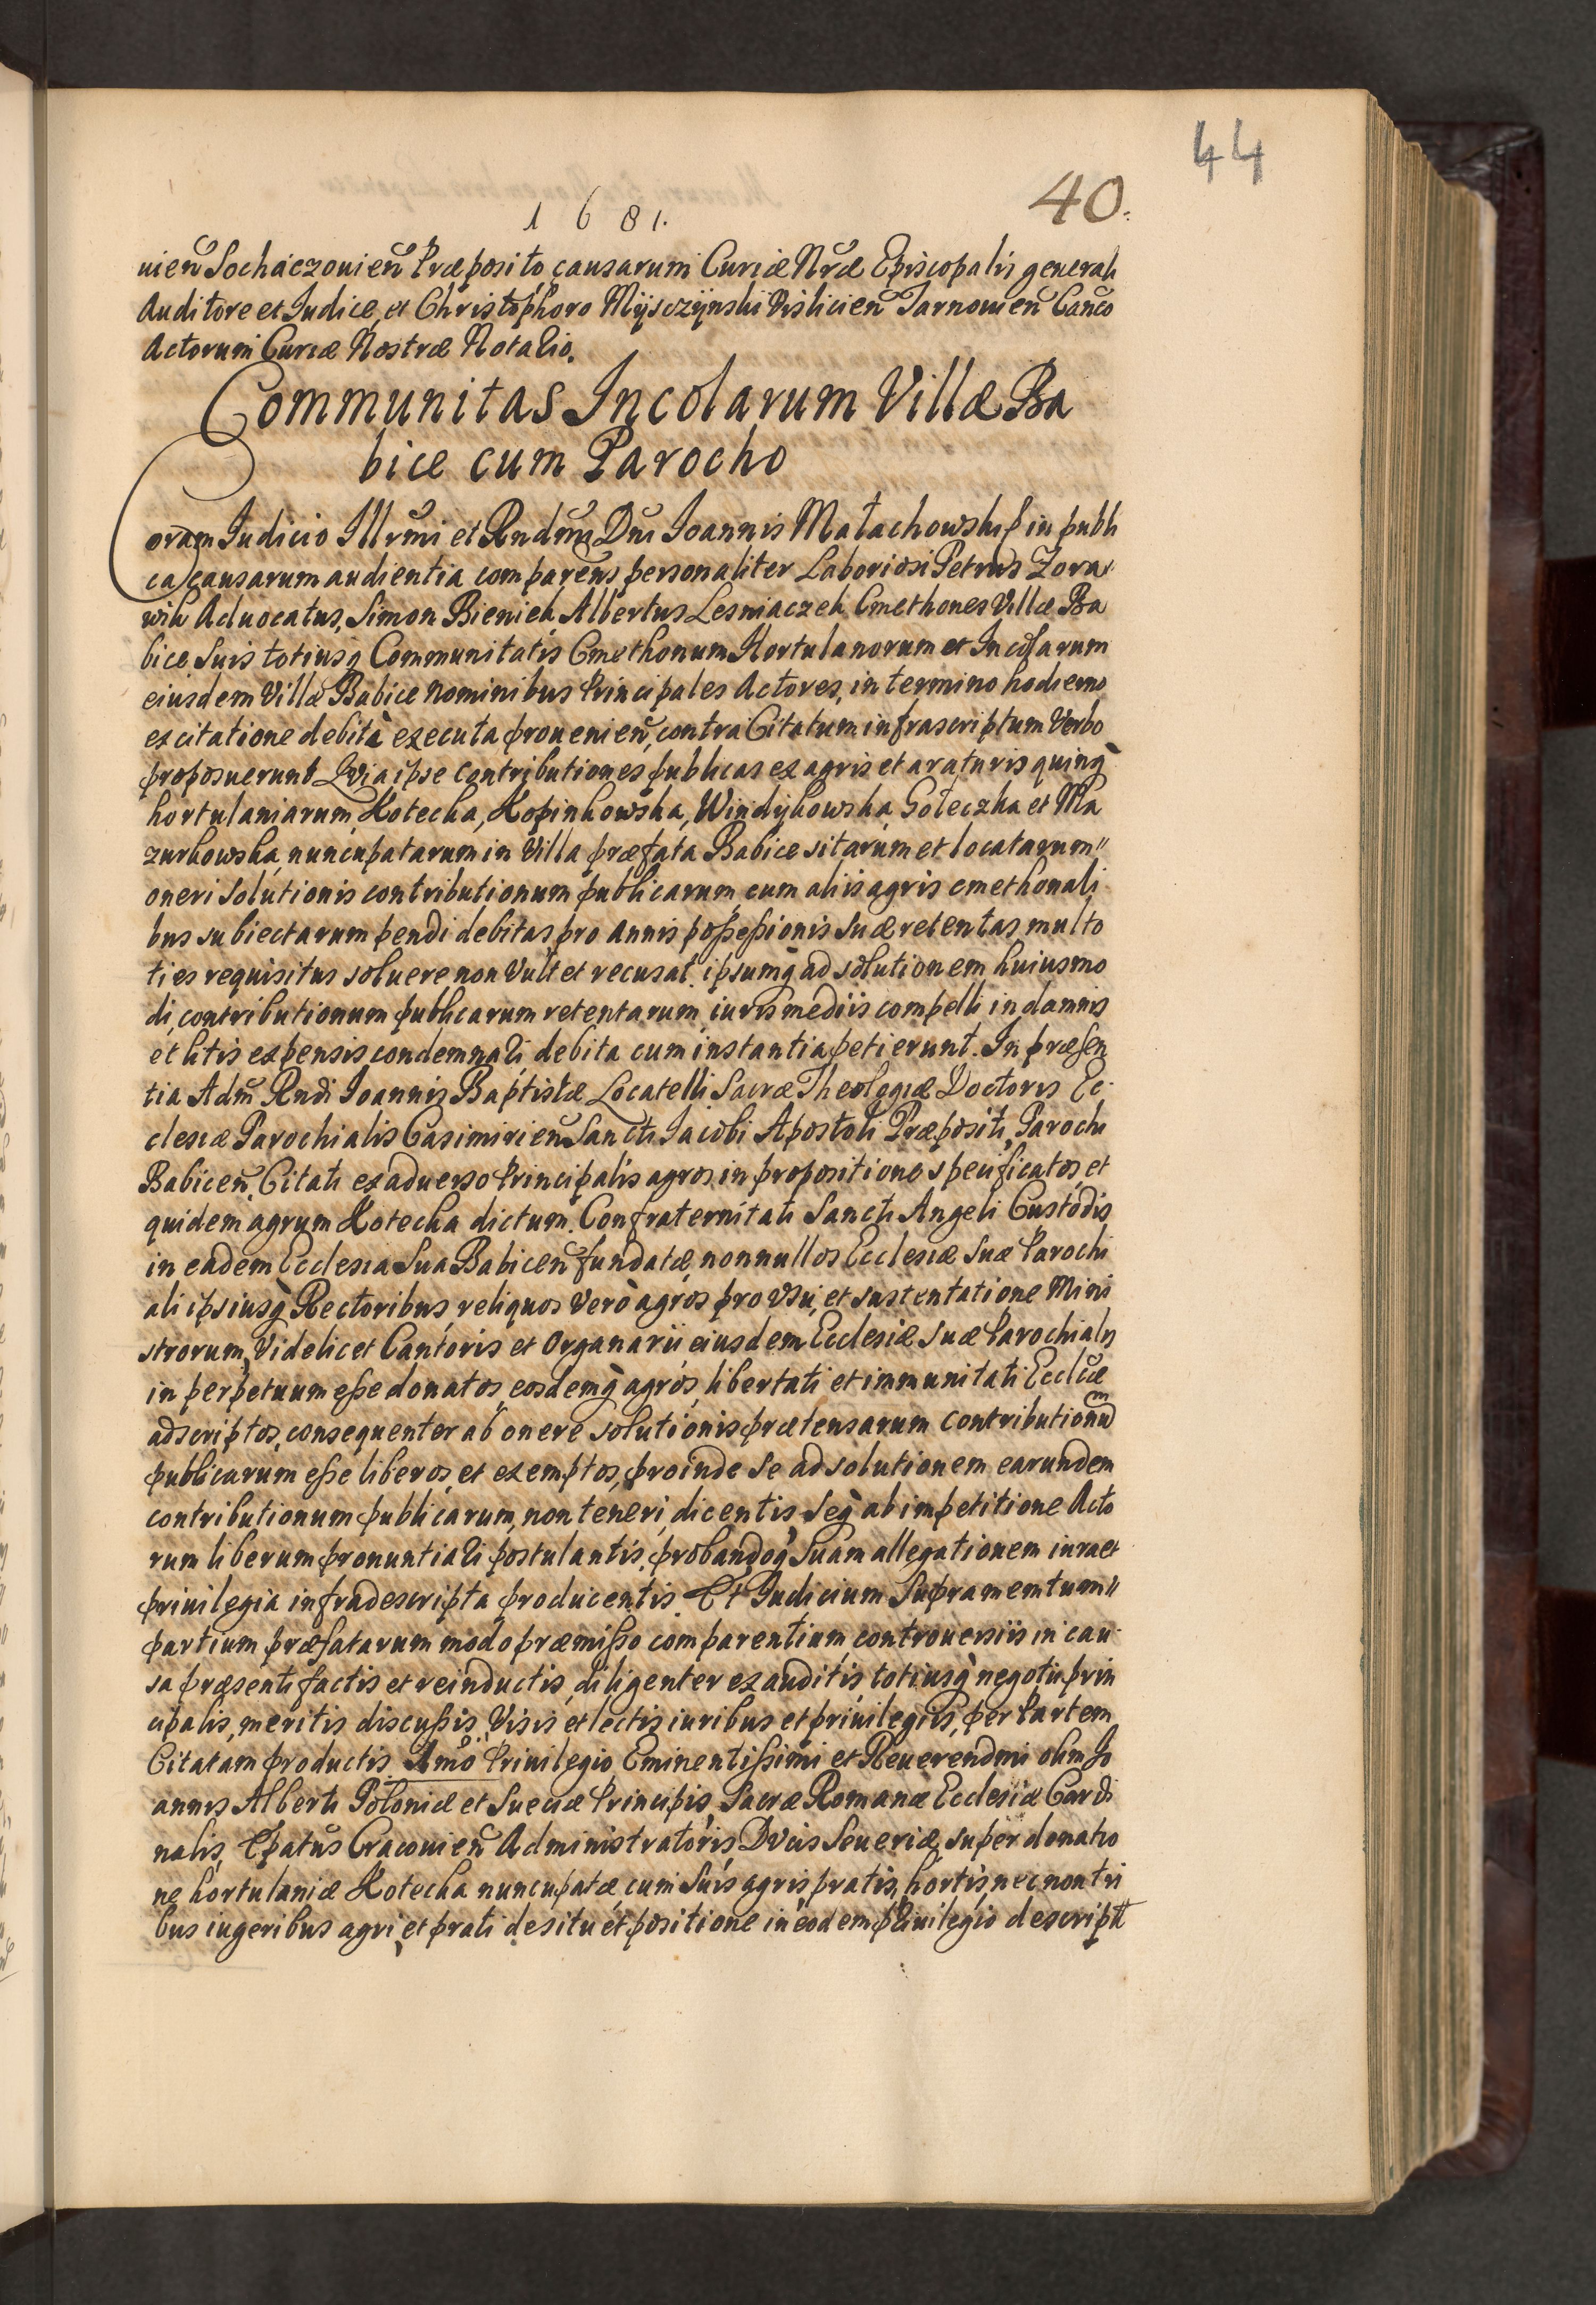 44
40.
1681.
uien̄ Sochaczouien̄ Præposito, causarum Curiæ Nr̄æ Episcopalis generali
Auditore et Iudice, et Christophoro Mÿsczÿnski Vislicien̄ Tarnouien̄ Canc̄o
Actorum Curiæ Nostræ Notario.
Communitas Incolarum Villæ Ba
bice cum Parocho
Coram Iudicio Illr̄mi et Rndm̄i Dn̄i Ioannis Małachowski in publi
ca causarum audientia comparen̄s personaliter Laboriosi Petrus Zora
wik Aduocatus, Simon Bieniek, Albertus Lesniaczek Cmethones Villæ Ba
bice Suis totiusq̀ Communitatis Cmethonum Hortulanorum et Incolarum
eiusdem Villæ Babice Nominibus Principales Actores, in termino hodierno
ex citatione debità executa prouenien̄, contra Citatum infrascriptum Verbo
proposuerunt Quia ipse contributiones publicas ex agris et araturis quinq̀
hortulaniarum Kotecka, Kopinkowska, Windÿkowska, Goleczka et Ma
zurkowska, nuncupatarum in Villa præfata Babice sitarum et locatarum"
oneri solutionis contributionum publicarum, cum aliis agris cmethonali
bus subiectarum pendi debitas pro Annis possessionis Suæ retentas, multo
ties requisitus soluere non Vult et recusat. ipsumq̀ ad solutionem huiusmo
di, contributionum publicarum retentarum, iuris mediis compelli in damnis
et litis expensis condemnari, debita cum instantia petierunt. In præsen
tia Adm̄ Rndi Ioannis Baptistæ Locatelli Sacræ Theologiæ Doctoris Ec
clesiæ Parochialis Casimirien̄ Sancti Iacobi Apostoli Præpositi, Parochi
Babicen̄, Citati ex aduerso Principalis agros in propositione specificatos, et
quidem agrum Kotecka dictum. Confraternitati Sancti Angeli Custodis
in eadem Ecclesia Sua Babicen̄ fundatæ, nonnullos Ecclesiæ Suæ Parochi
ali ipsiusq̀ Rectoribus, reliquos Verò agros pro Vsu, et sustentatione Mini
strorum, Videlicet Cantoris et Organarii eiusdem Ecclesiæ suæ Parochialis
in perpetuum esse donatos, eosdemq̀ agros, libertati et immunitati Eccl̄cæ
adscriptos, consequenter ab onere solutionis prætensarum contributionum
publicarum esse liberos, et exemptos, proinde Se ad solutionem earundem
contributionum publicarum, non teneri, dicentis, Seq̀ ab impetitione Acto
rum liberum pronuntiari postulantis, probandoq̀ Suam allegationem iura et
priuilegia infradescripta producentis. Et Iudicium Supramemtum"
partium præfatarum modo præmisso comparentium, controuersiis in cau
sa præsenti factis et reinductis, diligenter exauditis, totiusq̀ negotii prin
cipalis, meritis discussis, Visis et lectis iuribus et priuilegiis, per Partem
Citatam productis. 1mo Priuilegio Eminentissimi et Reuerendmi olim Io
annis Alberti Poloniæ et Sueciæ Principis, Sacræ Romanæ Ecclesiæ Cardi
nalis, Ep̄atus Cracouien̄ Administratoris, Dvcis Seueriæ, super donatio
ne hortulaniæ Kotecka nuncupatæ, cum Suis agris pratis, hortis, nec non tri
bus iugeribus agri, et prati de situ et positione in eodem priuilegio descriptis